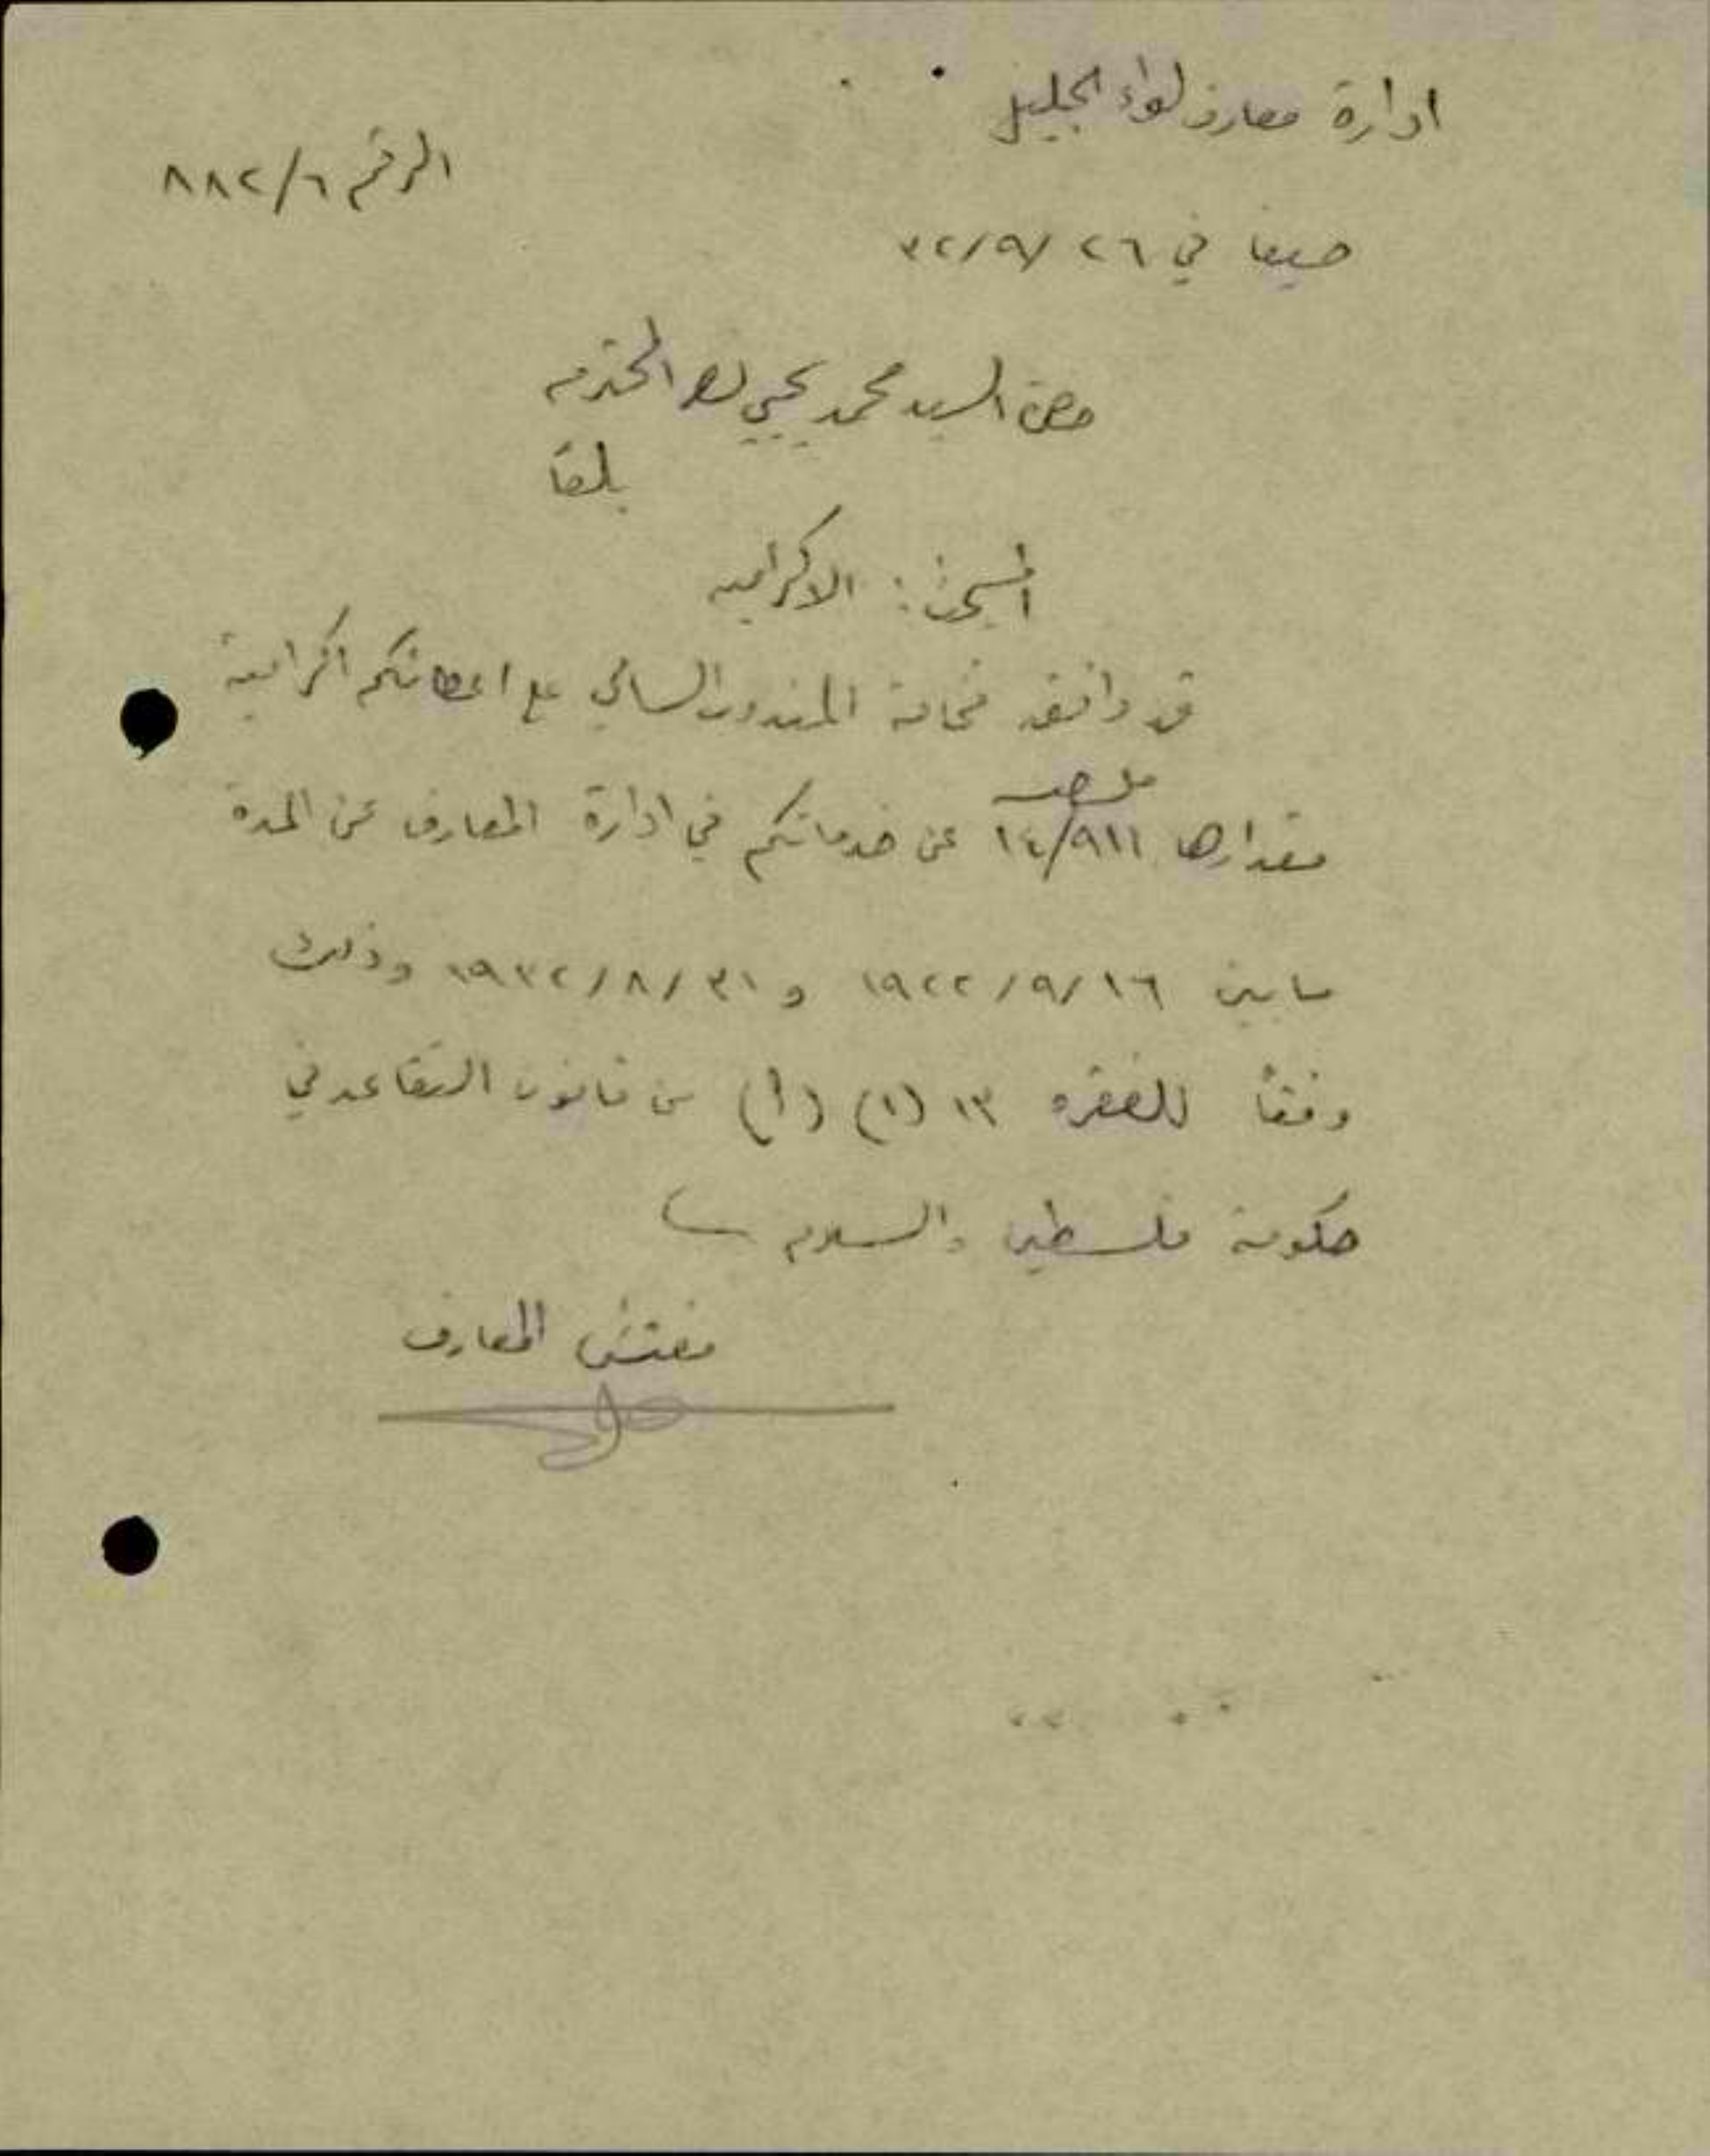 ادارة معارف لواء الجليل
الرقم ٨٨٢/٦
حيفا في ٢٦ /٩/ ٣٢
حضرة السيد محمد يحيى المحترم
المبحث : الاكرامية
قد وافق فخامة المندوب السامي على اعطائكم اكرامية
مقدارها ١٤/٩١١ عن خدماتكم في ادارة المعارف عن المدة
ما بين ١٦ /٩/ ١٩٢٢ و ٣١ /٨/ ١٩٣٢ وذلك
وفقاً للفقره ١٣ (١) (أ) من قانون التقاعد في
حكومة فلسطين والسلام
مفتش المعارف